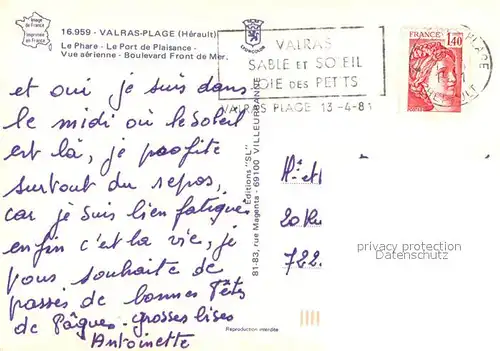 Image de France
Imprimée en France
16.959 - VALRAS-PLAGE (Hérault)
Le Phare - Le Port de Plaisance -
Vue aérienne - Boulevard Front de Mer.
VALRAS
SABLE ET SOLEIL
JOIE DES PETITS
VALRAS PLAGE 13-4-81
FRANCE
1,40
PLAGE
HERAULT
et oui je suis dans
le midi où le soleil
est là, je profite
surtout du repos,
car je suis bien fatiguée
enfin c'est la vie, je
vous souhaite de
passer de bonnes fêtes
de Pâques. grosses bises
Antoinette
Editions "SL"
81-83, rue Magenta - 69100 VILLEURBANNE
Mr et
20 Ru
722.
privacy protection
Datenschutz
Reproduction interdite